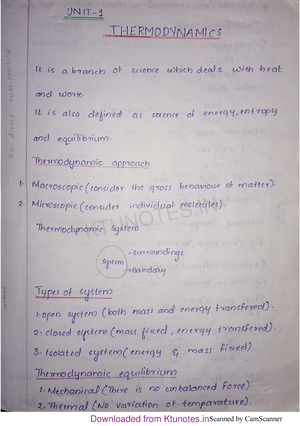 UNIT-1
THERMODYNAMICS
It is a branch of science which deals with heat
and work.
It is also defined as science of energy, entropy
and equilibrium.
Thermodynamic approach
1. Macroscopic (consider the gross behaviour of matter).
2. Microscopic (consider individual molecules).
KTUNOTES.IN
Thermodynamic system
surroundings
system
boundary
Types of system
1. open system (both mass and energy transfered).
2. closed system (mass fixed, energy transfered).
3. Isolated system (energy & mass fixed).
Thermodynamic equilibrium
1. Mechanical (There is no unbalanced force)
2. Thermal (No variation of temparature).
Downloaded from Ktunotes.in
Scanned by CamScanner